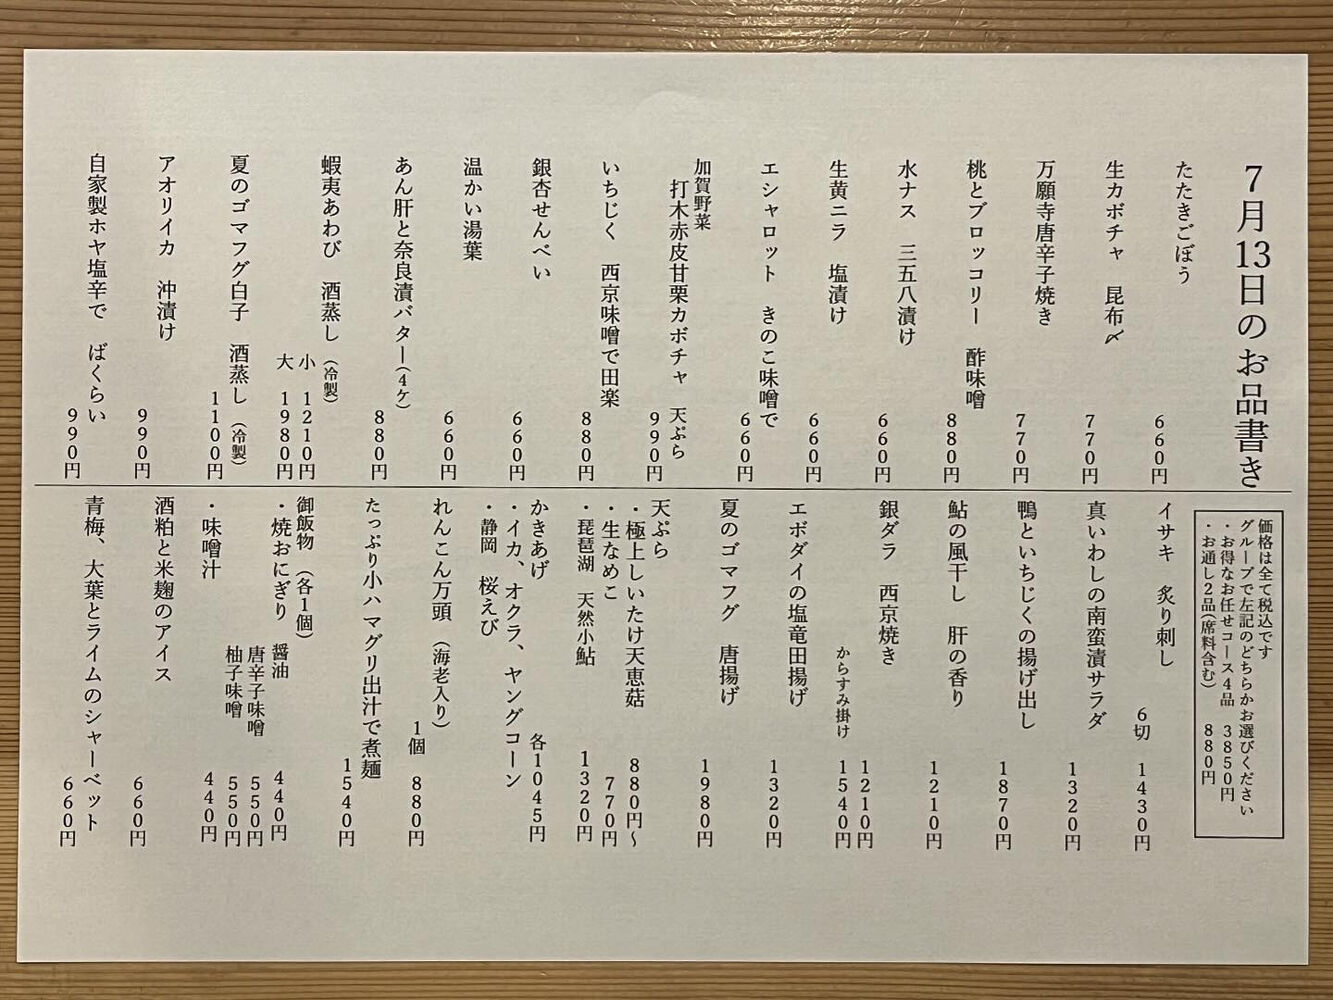 7月13日のお品書き
たたきごぼう
660円
生カボチャ 昆布〆
770円
万願寺唐辛子焼き
770円
桃とブロッコリー 酢味噌
880円
水ナス 三五八漬け
660円
生黄ニラ 塩漬け
660円
エシャロット きのこ味噌で
660円
加賀野菜
打木赤皮甘栗カボチャ 天ぷら
990円
いちじく 西京味噌で田楽
880円
銀杏せんべい
660円
温かい湯葉
660円
あん肝と奈良漬バター(4ケ)
880円
蝦夷あわび 酒蒸し(冷製)
小 1210円
大 1980円
夏のゴマフグ白子 酒蒸し(冷製)
1100円
アオリイカ 沖漬け
990円
自家製ホヤ塩辛で ばくらい
990円
価格は全て税込です
グループで左記のどちらかお選びください
・お得なお任せコース4品 3850円
・お通し2品(席料含む) 880円
イサキ 炙り刺し
6切 1430円
真いわしの南蛮漬サラダ
1320円
鴨といちじくの揚げ出し
1870円
鮎の風干し 肝の香り
1210円
銀ダラ 西京焼き
1210円
からすみ掛け 1540円
エボダイの塩竜田揚げ
1320円
夏のゴマフグ 唐揚げ
1980円
天ぷら
・極上しいたけ天恵菇 880円〜
・生なめこ 770円
・琵琶湖 天然小鮎 1320円
かきあげ 各1045円
・イカ、オクラ、ヤングコーン
・静岡 桜えび
れんこん万頭(海老入り)
1個 880円
たっぷり小ハマグリ出汁で煮麺
1540円
御飯物(各1個)
・焼おにぎり 醤油 440円
唐辛子味噌 550円
柚子味噌 550円
・味噌汁 440円
酒粕と米麹のアイス
660円
青梅、大葉とライムのシャーベット
660円